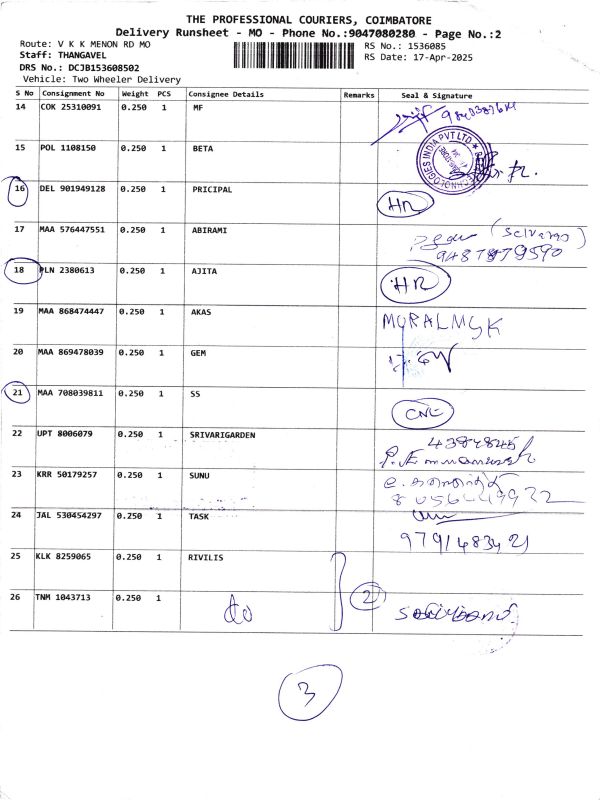 THE PROFESSIONAL COURIERS, COIMBATORE
Delivery Runsheet - MO - Phone No.:9047080280 - Page No.:2
Route: V K K MENON RD MO
RS No.: 1536085
Staff: THANGAVEL
RS Date: 17-Apr-2025
DRS No.: DCJB153608502
Vehicle: Two Wheeler Delivery
S No Consignment No Weight PCS Consignee Details Remarks Seal & Signature
14 COK 25310091 0.250 1 MF
15 POL 1108150 0.250 1 BETA
16 DEL 901949128 0.250 1 PRICIPAL HR
17 MAA 576447551 0.250 1 ABIRAMI (Selvaraj)
18 PLN 2380613 0.250 1 AJITA HR
19 MAA 868474447 0.250 1 AKAS
20 MAA 869478039 0.250 1 GEM
21 MAA 708039811 0.250 1 SS CNE
22 UPT 8006079 0.250 1 SRIVARIGARDEN 4384845
23 KRR 50179257 0.250 1 SUNU
24 JAL 530454297 0.250 1 TASK
9791483421
25 KLK 8259065 0.250 1 RIVILIS
26 TNM 1043713 0.250 1 do 2
3